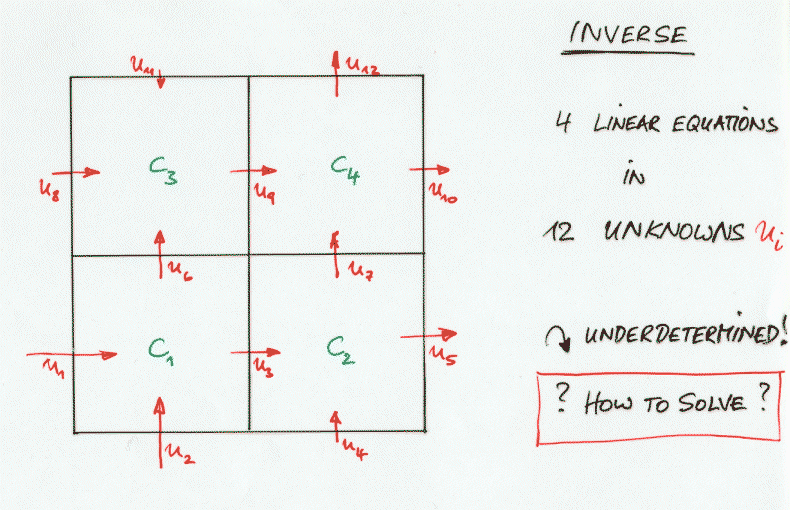 INVERSE
4 LINEAR EQUATIONS
IN
12 UNKNOWNS u_i
UNDERDETERMINED!
? HOW TO SOLVE ?
u_11
u_12
u_8
C_3
u_9
C_4
u_10
u_6
u_7
u_1
C_1
u_3
C_2
u_5
u_2
u_4